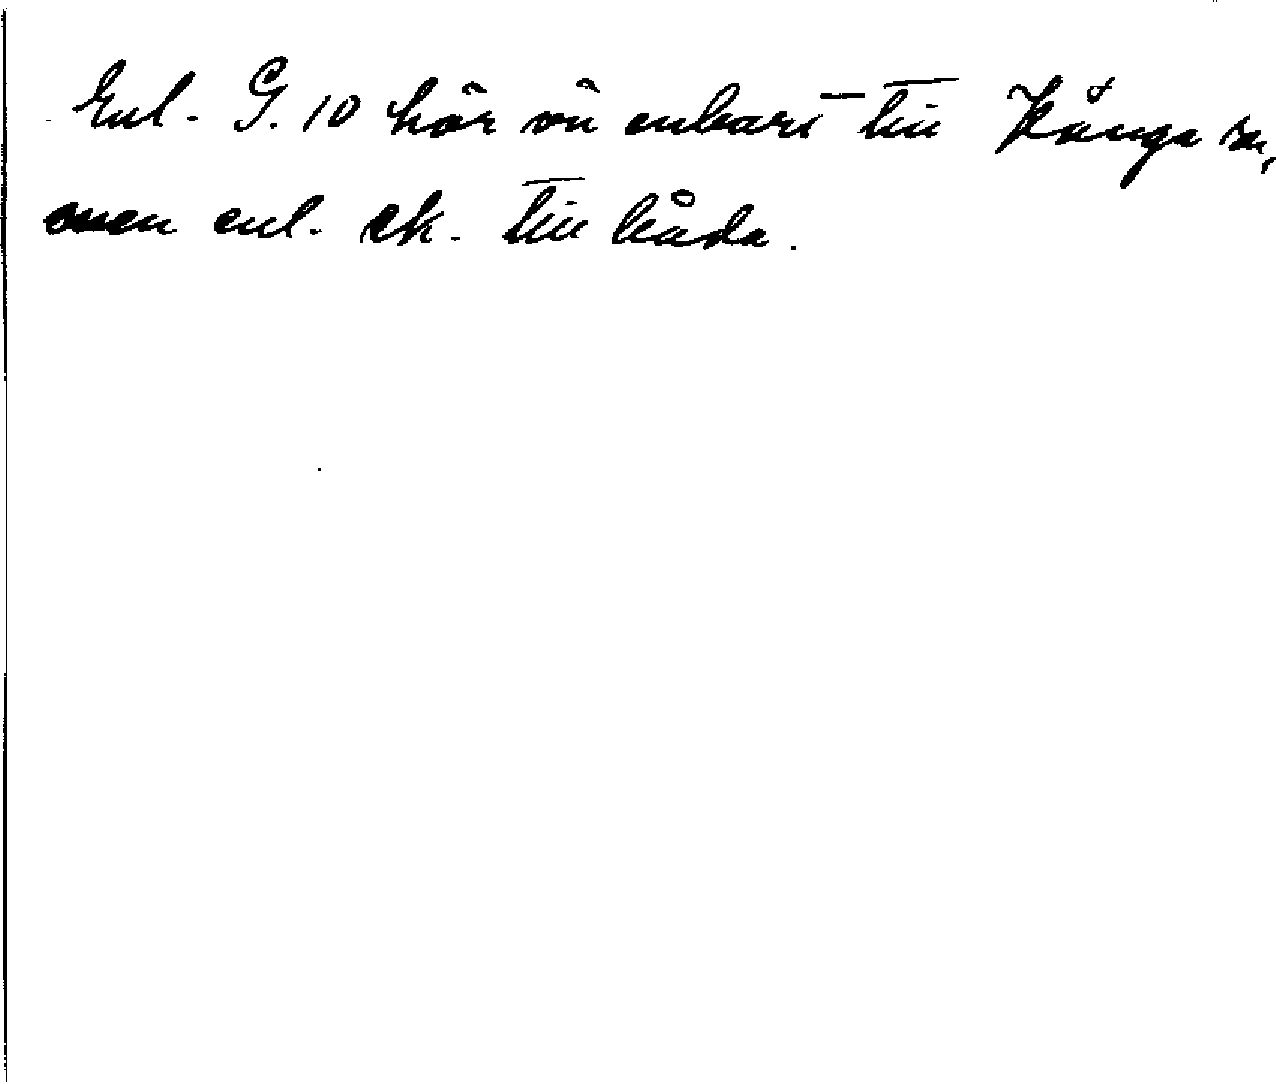 Enl. G. 10 hör ön enbart till Kånga sn,
men enl. ek. till båda.